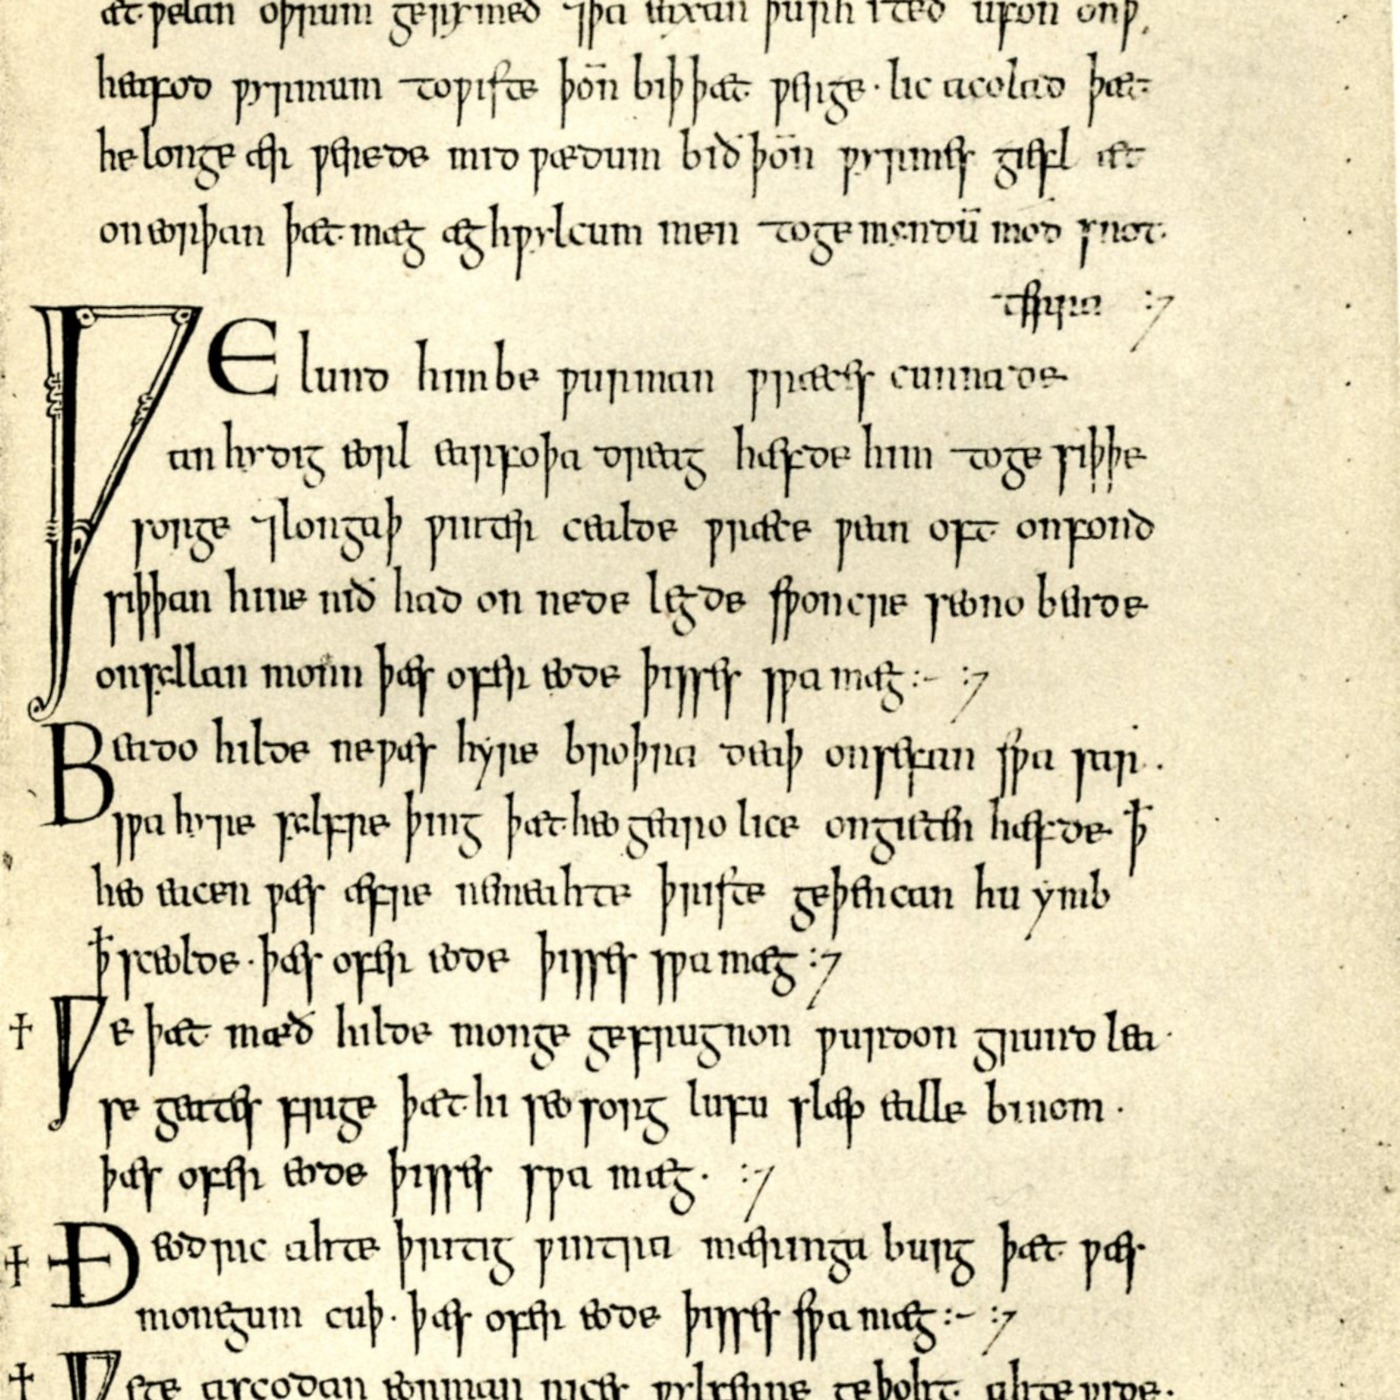 æt ƿelan oþrum geryrmed ⁊ sƿa ƿeaxan þurh
heafod ƿyrmum to ƿiste þoñ biþ þæt ƿerige · lic acolad þæt
he longe ær ƿerede mid ƿædum bið þoñ ƿyrmes giefl æt
on eorþan þæt mæg æghƿylcum men to gemyndū mod snot
terra :⁊
ǷElund him be ƿurman ƿræces cunnade
anhydig eorl earfoþa dreag hæfde him to gesiþþe
sorge ⁊ longaþ ƿintercealde ƿræce ƿean oft onfond
siþþan hine nið had on nede legde sƿoncre seono bende
onsyllan monn þæs ofer eode þisses sƿa mæg :- :⁊
Beado hilde ne ƿæs hyre broþra deaþ on sefan sƿa sar ·
sƿa hyre sylfre þing þæt heo gearo lice ongieten hæfde ꝥ
heo eacen ƿæs æfre ne meahte þriste geþencan hu ymb
ꝥ sceolde · þæs ofer eode þisses sƿa mæg :⁊
Ƿe þæt mæð hilde monge gefrugnon ƿurdon grund lea
se geates frige þæt hi seo sorg lufu slæp ealle binom ·
þæs ofer eode þisses sƿa mæg · :⁊
Ðeodric ahte þritig ƿintra mæringa burg þæt ƿæs
monegum cuþ · þæs ofer eode þisses sƿa mæg :- :⁊
Ƿe geascodan eormanrices ƿylfenne geþoht ahte ƿide ·